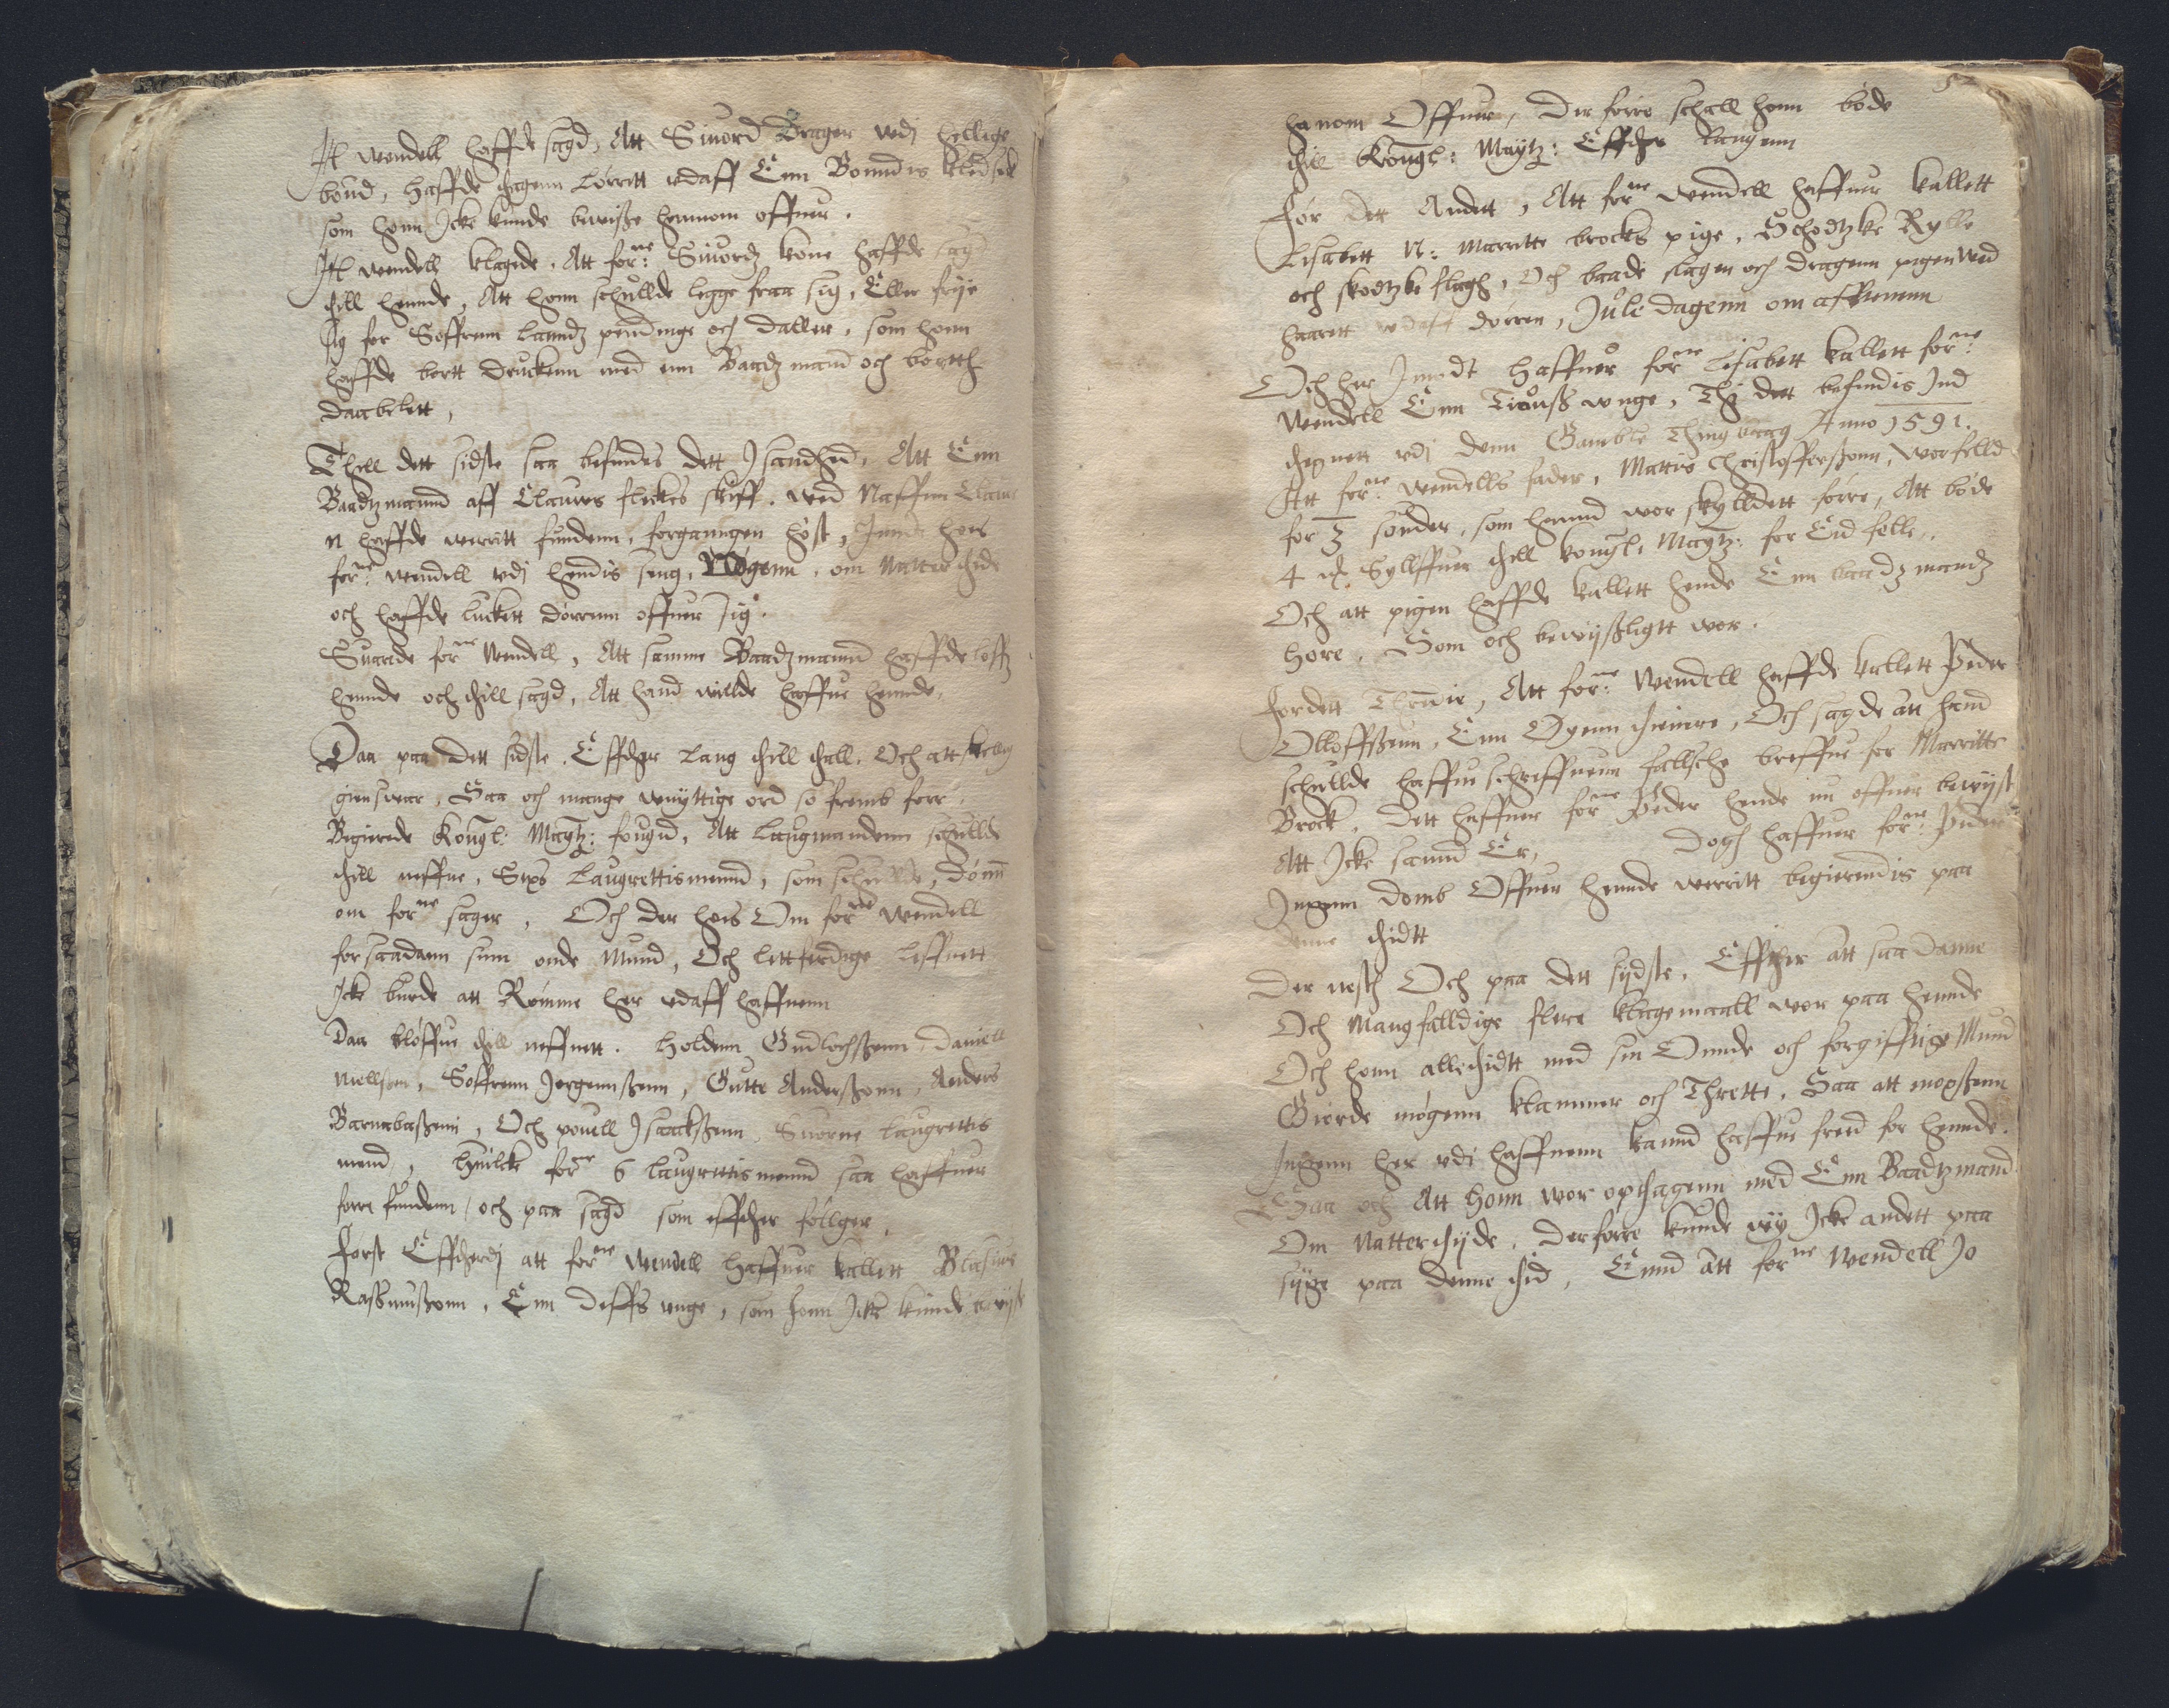 Jtt wendell haffde sagd, Att Siuord Drager vdj hellige
bond, haffde thagenn Lørritt vdaff Enn Bonndis kledsek
som honn Jcke kunde beuisze hannom offuer.
Jtt wendell klagede, Att forne: Siuordz kone haffde sagd
thill hennde, Att honn schullde legge fraa sig, Eller frije
sig for Søffrenn Laundz pendinge och daller, som honn
haffde bortt druckenn med enn Baadzmand och bortth
daabelett,
Thill dett sidste saa befindes dett J sandhed, Att Enn
Baadtzmannd aff Clauwes fleckes skiff. wed Naffnn Claus
N haffde werritt fundenn, forganngen høst, Jnnde hoes
forne: wendell vdj hendis seng, Nøgenn, om Natter thide
och haffde luckett dørrenn offuer sig.
Suarde forne Wendell, Att samme Baadzmannd haffde loffz
hennde och thill sagd, Att hand willde haffue hennde.
Daa paa dett sidste. Effther Lang thill thall. Och att skellig
giensuar, Saa och mange vnyttige ord so fremb forr,
Begierede Kongl: Maytz: fougid, Att Laugmandenn schullde
thill neffne, Sexs Laugrettismennd, som schullde, dømme
om forne sager, Och der hoes Om forne Wendell
for saadann sinn onde Mund, Och lettferdige leffnett
Jcke burde att Rømme her vdaff haffnenn
Daa bløffue thill neffnett. Holdenn Gudlochszenn, Daniell
Niellsen, Søffrenn Jørgennszenn, Gutte Anderszonn, Anders
Barnabaszenn, Och pouell Jsaackszenn, Suorne Laugrettis
mend, Huilcke forne 6 Laugrettismennd saa haffuer
forre fundenn, och paa sagd som effther føllger.
Først Effterdj att forne Wendell haffuer kallett Blasius
Raszmuszonn, Enn deffls vnge, som honn Jcke kunde beuisze
hanom Offuer, Der forre schall honn bøde
thill Kongl: Maytz: Effther Laugenn
For dett Andett, Att forne Wendell haffuer kallett
Lisabett N: Marritte brocks pige, Schodtzke Rylle
och skodtzke flagh, Och baade slagen och dragenn pigen wed
haarett vdaff dørren, Juledagenn om afftenenn
Och her Jmodt haffuer forne Lisabett kallett forne:
Wendell Enn Tiouffs vnge, Thj dett befindis Ind
thegnett vdj denn Gamble Thingboeg Anno 1591.
Att forne: wendells fader, Mattis Christoffersszonn, wor felld
for 3 sønder, som hannd wor skylldett førre, Att bøde
4 Syllffuer thill kongl: Maytz: for Eid felle.
Och att pigen haffde kallett hende Enn baadzmandz
hore. Som och bewijszligtt wor.
For dett Thredie, Att forne: Wendell haffde kallett Peder
Olloffszenn, Enn Øyenn thienere, Och sagde att hand
schullde haffue schreffuenn fallsche breffue for Marritte
Brock. Dett haffuer forne Peder hende nu offuer bewijst
Att Jcke sannd Er, Doch haffuer forne: Peder
Jngenn domb Offuer hennde werritt begierendis paa
denne thidtt
Der nest Och paa dett sijdste, Effther att saa danne
Och Mangfalldige flere klagemaall wor paa hennde
Och honn allethidtt med sin Onnde och forgifftige Mund
Giørde møgenn klammer och Thrette, Saa att mopszenn
Jngenn her vdj haffnenn kannd haffue fred for hennde.
Saa och Att honn wor opthagenn med Enn Baadtzmand
Om Natterthijde, derforre kunde wij Jcke andett paa
sijge paa denne thid, Ennd Att forne Wendell Jo